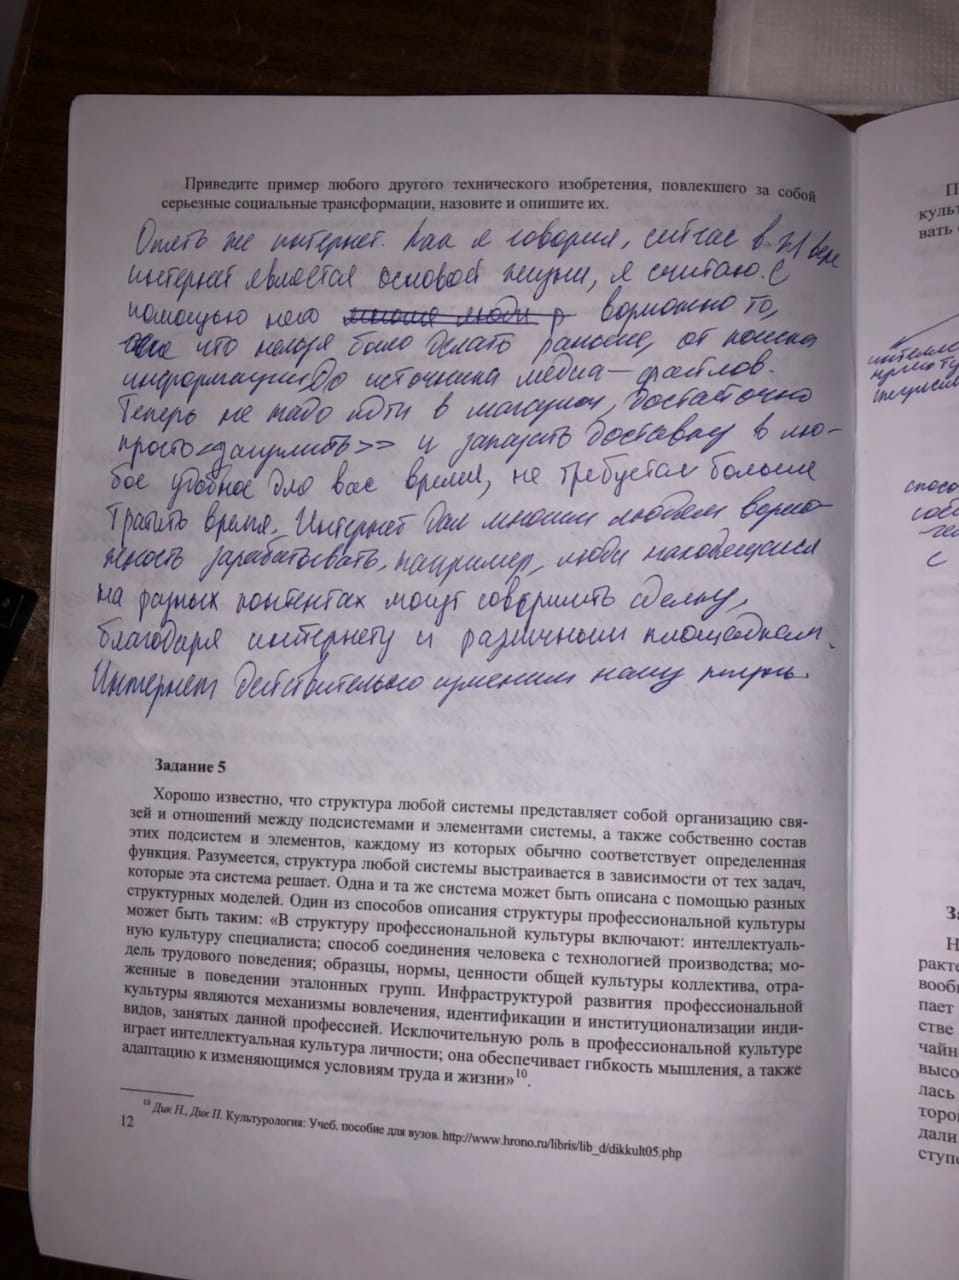 Приведите пример любого другого технического изобретения, повлекшего за собой
серьезные социальные трансформации, назовите и опишите их.
Опять же интернет. Как я говорил, сейчас в XXI веке
интернет является основой жизни, я считаю. С
помощью него многие люди р возможно то,
что нельзя было делать раньше, от поиска
информации до источника медиа-файлов.
Теперь не надо идти в магазин, достаточно
просто <<загуглить>> и заказать доставку в лю-
бое удобное для вас время, не требуется больше
тратить время. Интернет дал многим людям возмо-
жность зарабатывать, например, люди находящиеся
на разных континентах могут совершить сделку,
благодаря интернету и различным площадкам.
Интернет действительно изменил нашу жизнь.
Задание 5
Хорошо известно, что структура любой системы представляет собой организацию свя-
зей и отношений между подсистемами и элементами системы, а также собственно состав
этих подсистем и элементов, каждому из которых обычно соответствует определенная
функция. Разумеется, структура любой системы выстраивается в зависимости от тех задач,
которые эта система решает. Одна и та же система может быть описана с помощью разных
структурных моделей. Один из способов описания структуры профессиональной культуры
может быть таким: «В структуру профессиональной культуры включают: интеллектуаль-
ную культуру специалиста; способ соединения человека с технологией производства; мо-
дель трудового поведения; образцы, нормы, ценности общей культуры коллектива, отра-
женные в поведении эталонных групп. Инфраструктурой развития профессиональной
культуры являются механизмы вовлечения, идентификации и институционализации инди-
видов, занятых данной профессией. Исключительную роль в профессиональной культуре
играет интеллектуальная культура личности; она обеспечивает гибкость мышления, а также
адаптацию к изменяющимся условиям труда и жизни»10.
10 Дик Н., Дик П. Культурология: Учеб. пособие для вузов. http://www.hrono.ru/libris/lib_d/dikkult05.php
12
П
культ
вать
спосо
с
За
Н
ракте
вообщ
пает
стве
чайн
высо
лась
торо
дали
ступе